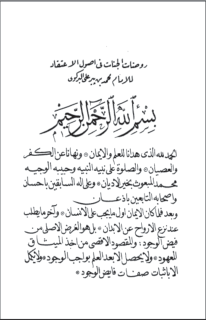 روضات الجنات في اصول الاعتقاد
للامام محمد بن بير علي البركوي
بسم الله الرحمن الرحيم
الحمد لله الذى هدانا للعلم والايمان * ونهانا عن الكفر
والعصيان * والصلوة على نبيه النبيه وحبيبه الوجيه
محمد المبعوث بخير الاديان * وعلى اله السابقين باحسان
واصحابه التابعين باذعان
وبعد فلما كان الايمان اول ما يجب على الانسان * وآخر ما يطلب
عند نزع الارواح عن الابدان * بل هو الغرض الاصلى من
فيض الوجود * والمقصود الاقصى من اخذ الميثاق
المعهود * ولا يحصل الا بعد العلم بواجب الوجود * ولا يكمل
الا باثبات صفات فايض الوجود *